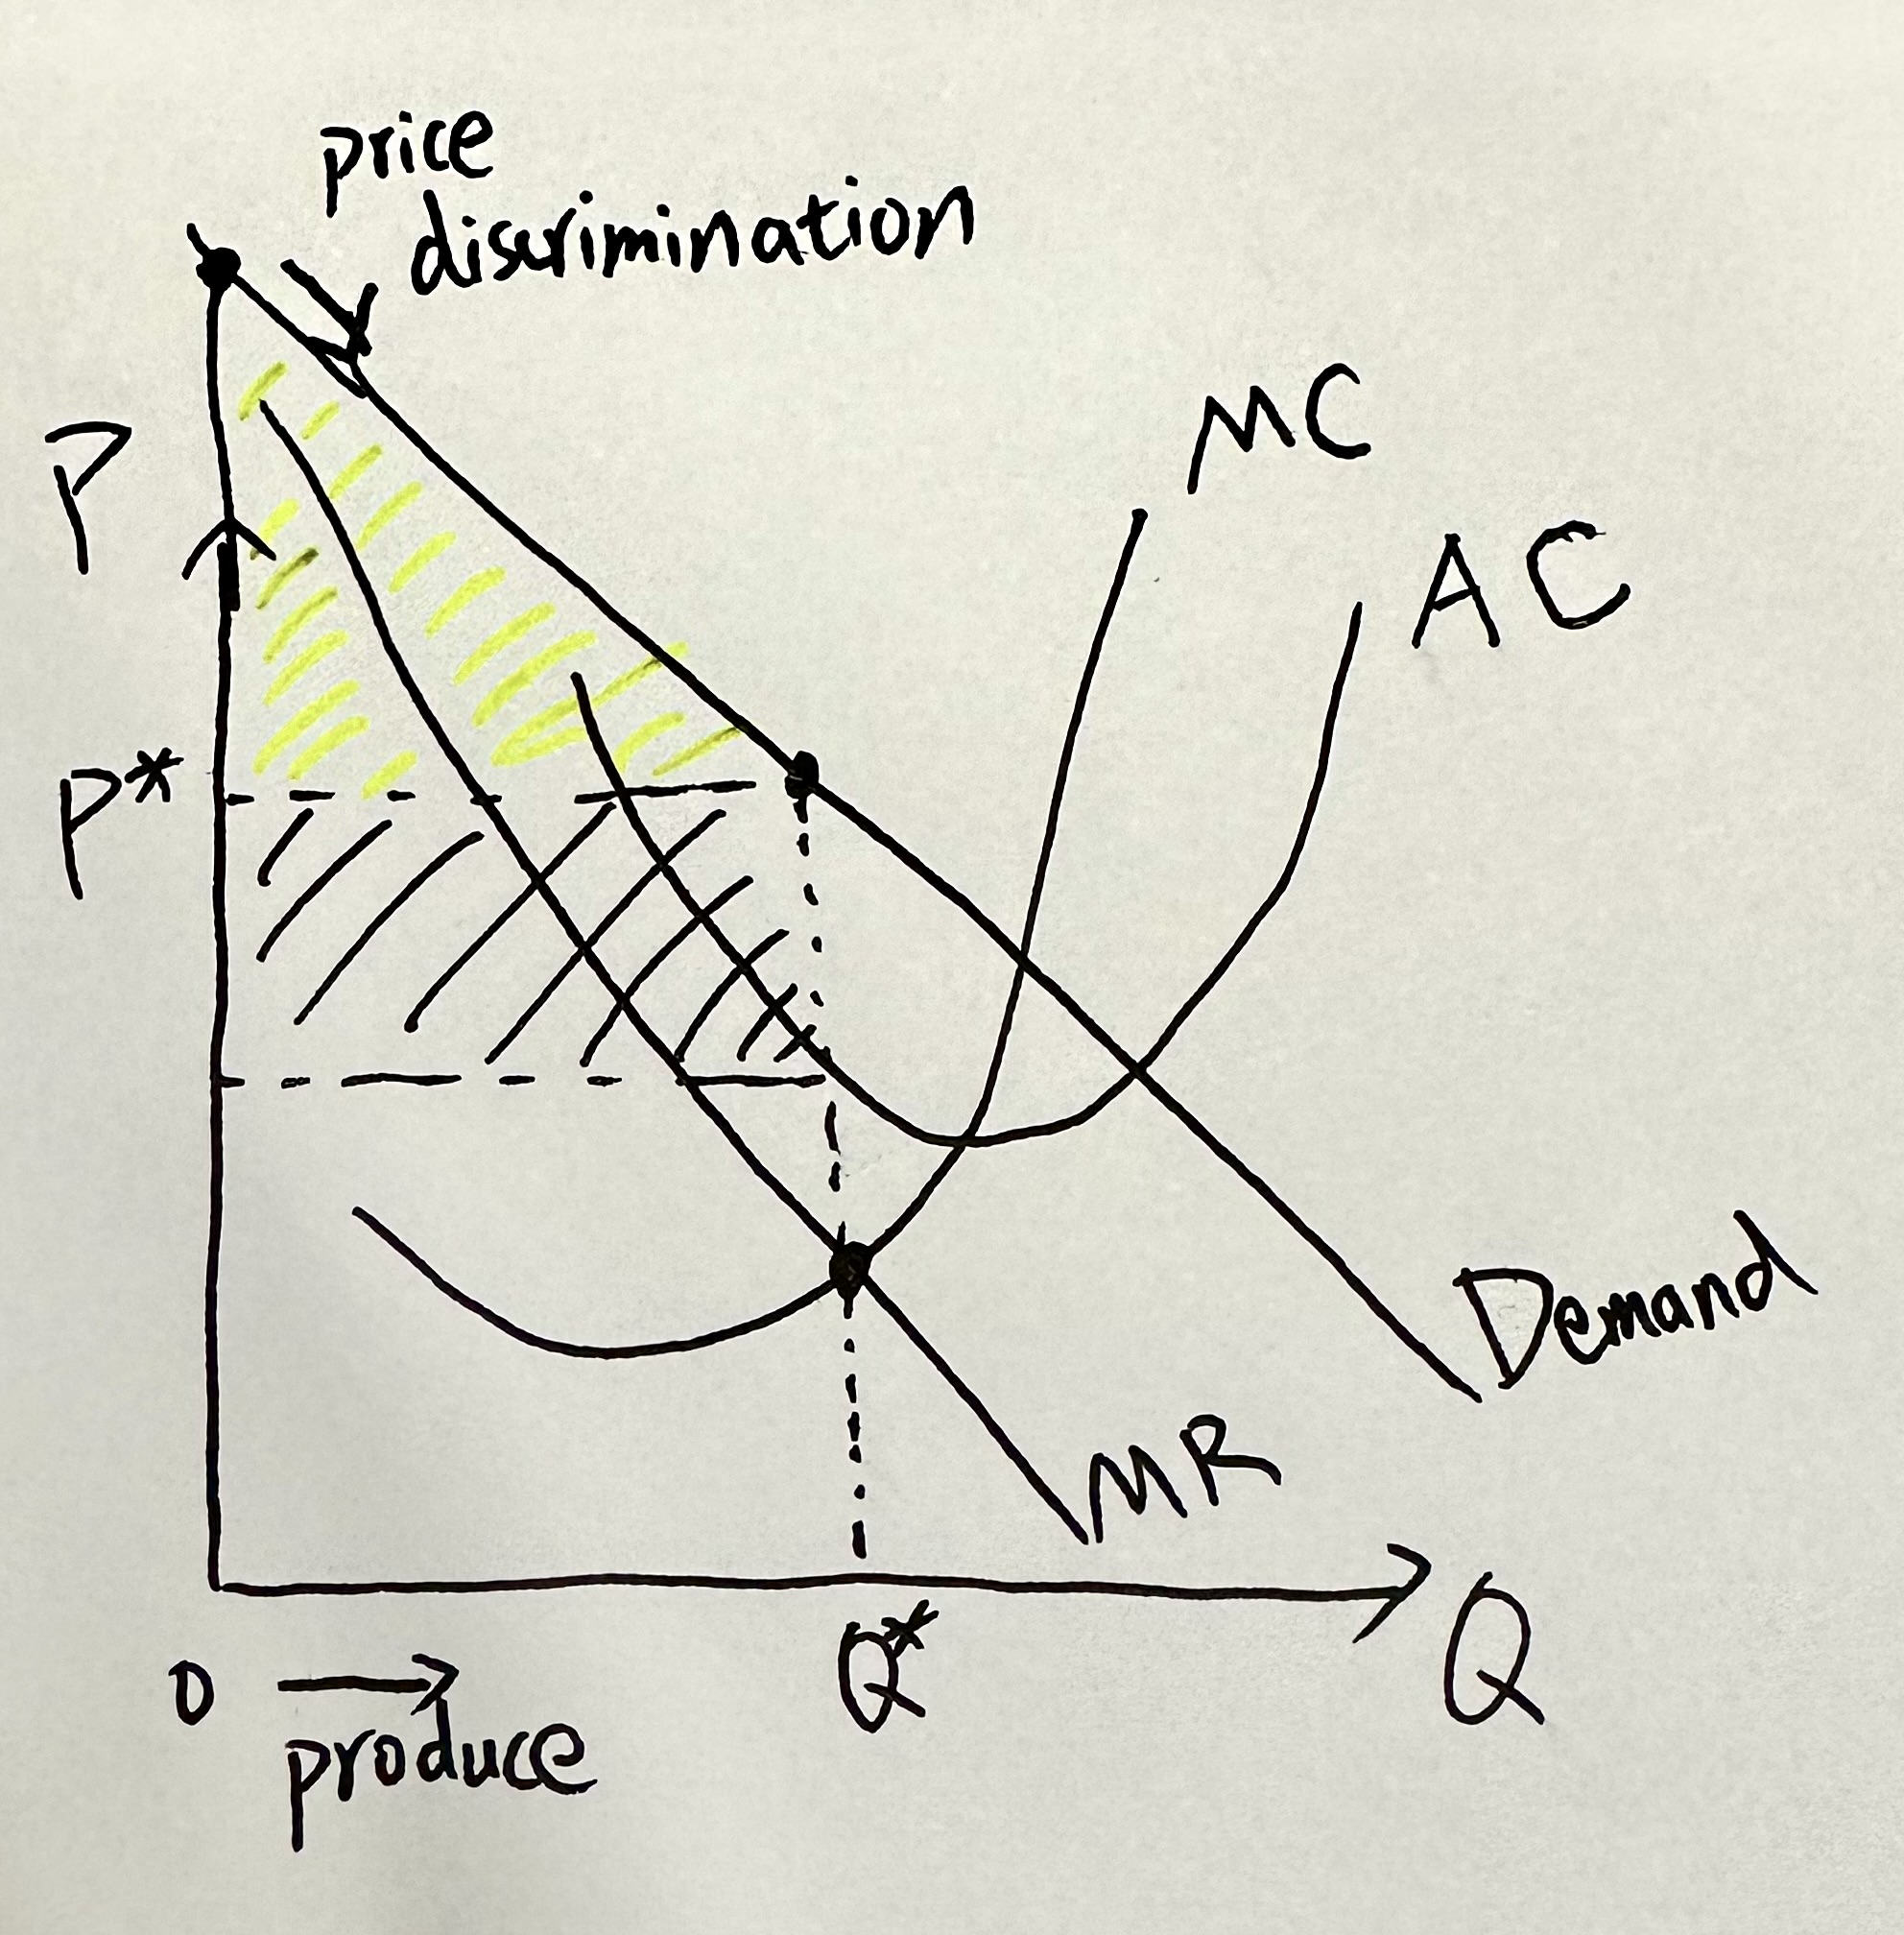 price
discrimination
P
MC
AC
P*
Demand
MR
Q*
Q
0
produce